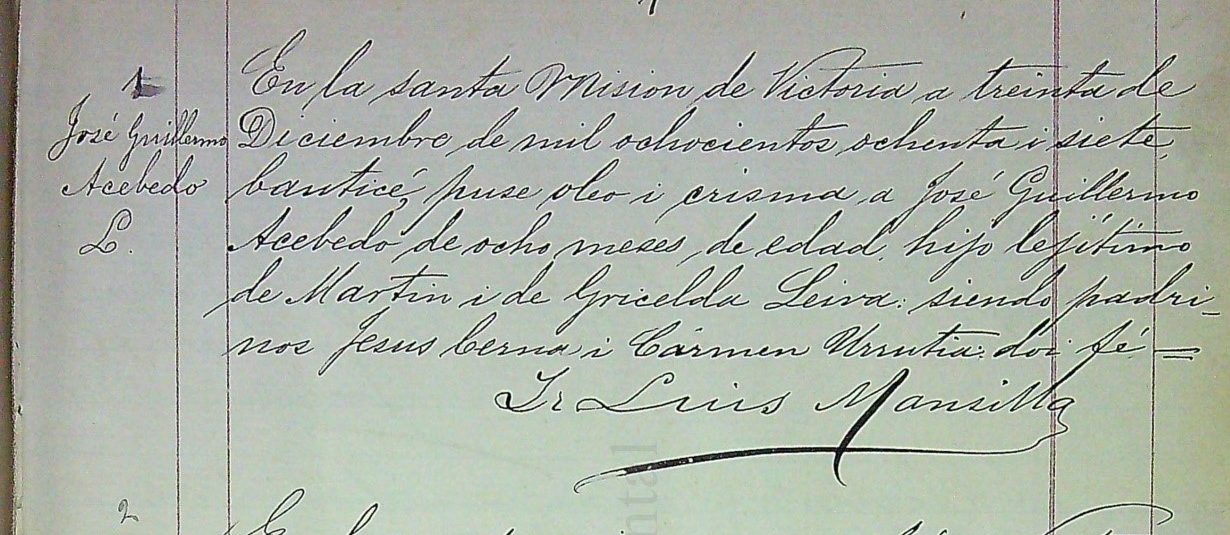 1
José Guillermo
Acebedo
L.
En la santa Mision de Victoria a treinta de
Diciembre de mil ochocientos ochenta i siete,
bauticé, puse oleo i crisma a José Guillermo
Acebedo de ocho meses de edad, hijo lejítimo
de Martin i de Gricelda Leiva: siendo padri-
nos Jesus Cerna i Cármen Urrutia: doi fé =
Fr Luis Mansilla
2